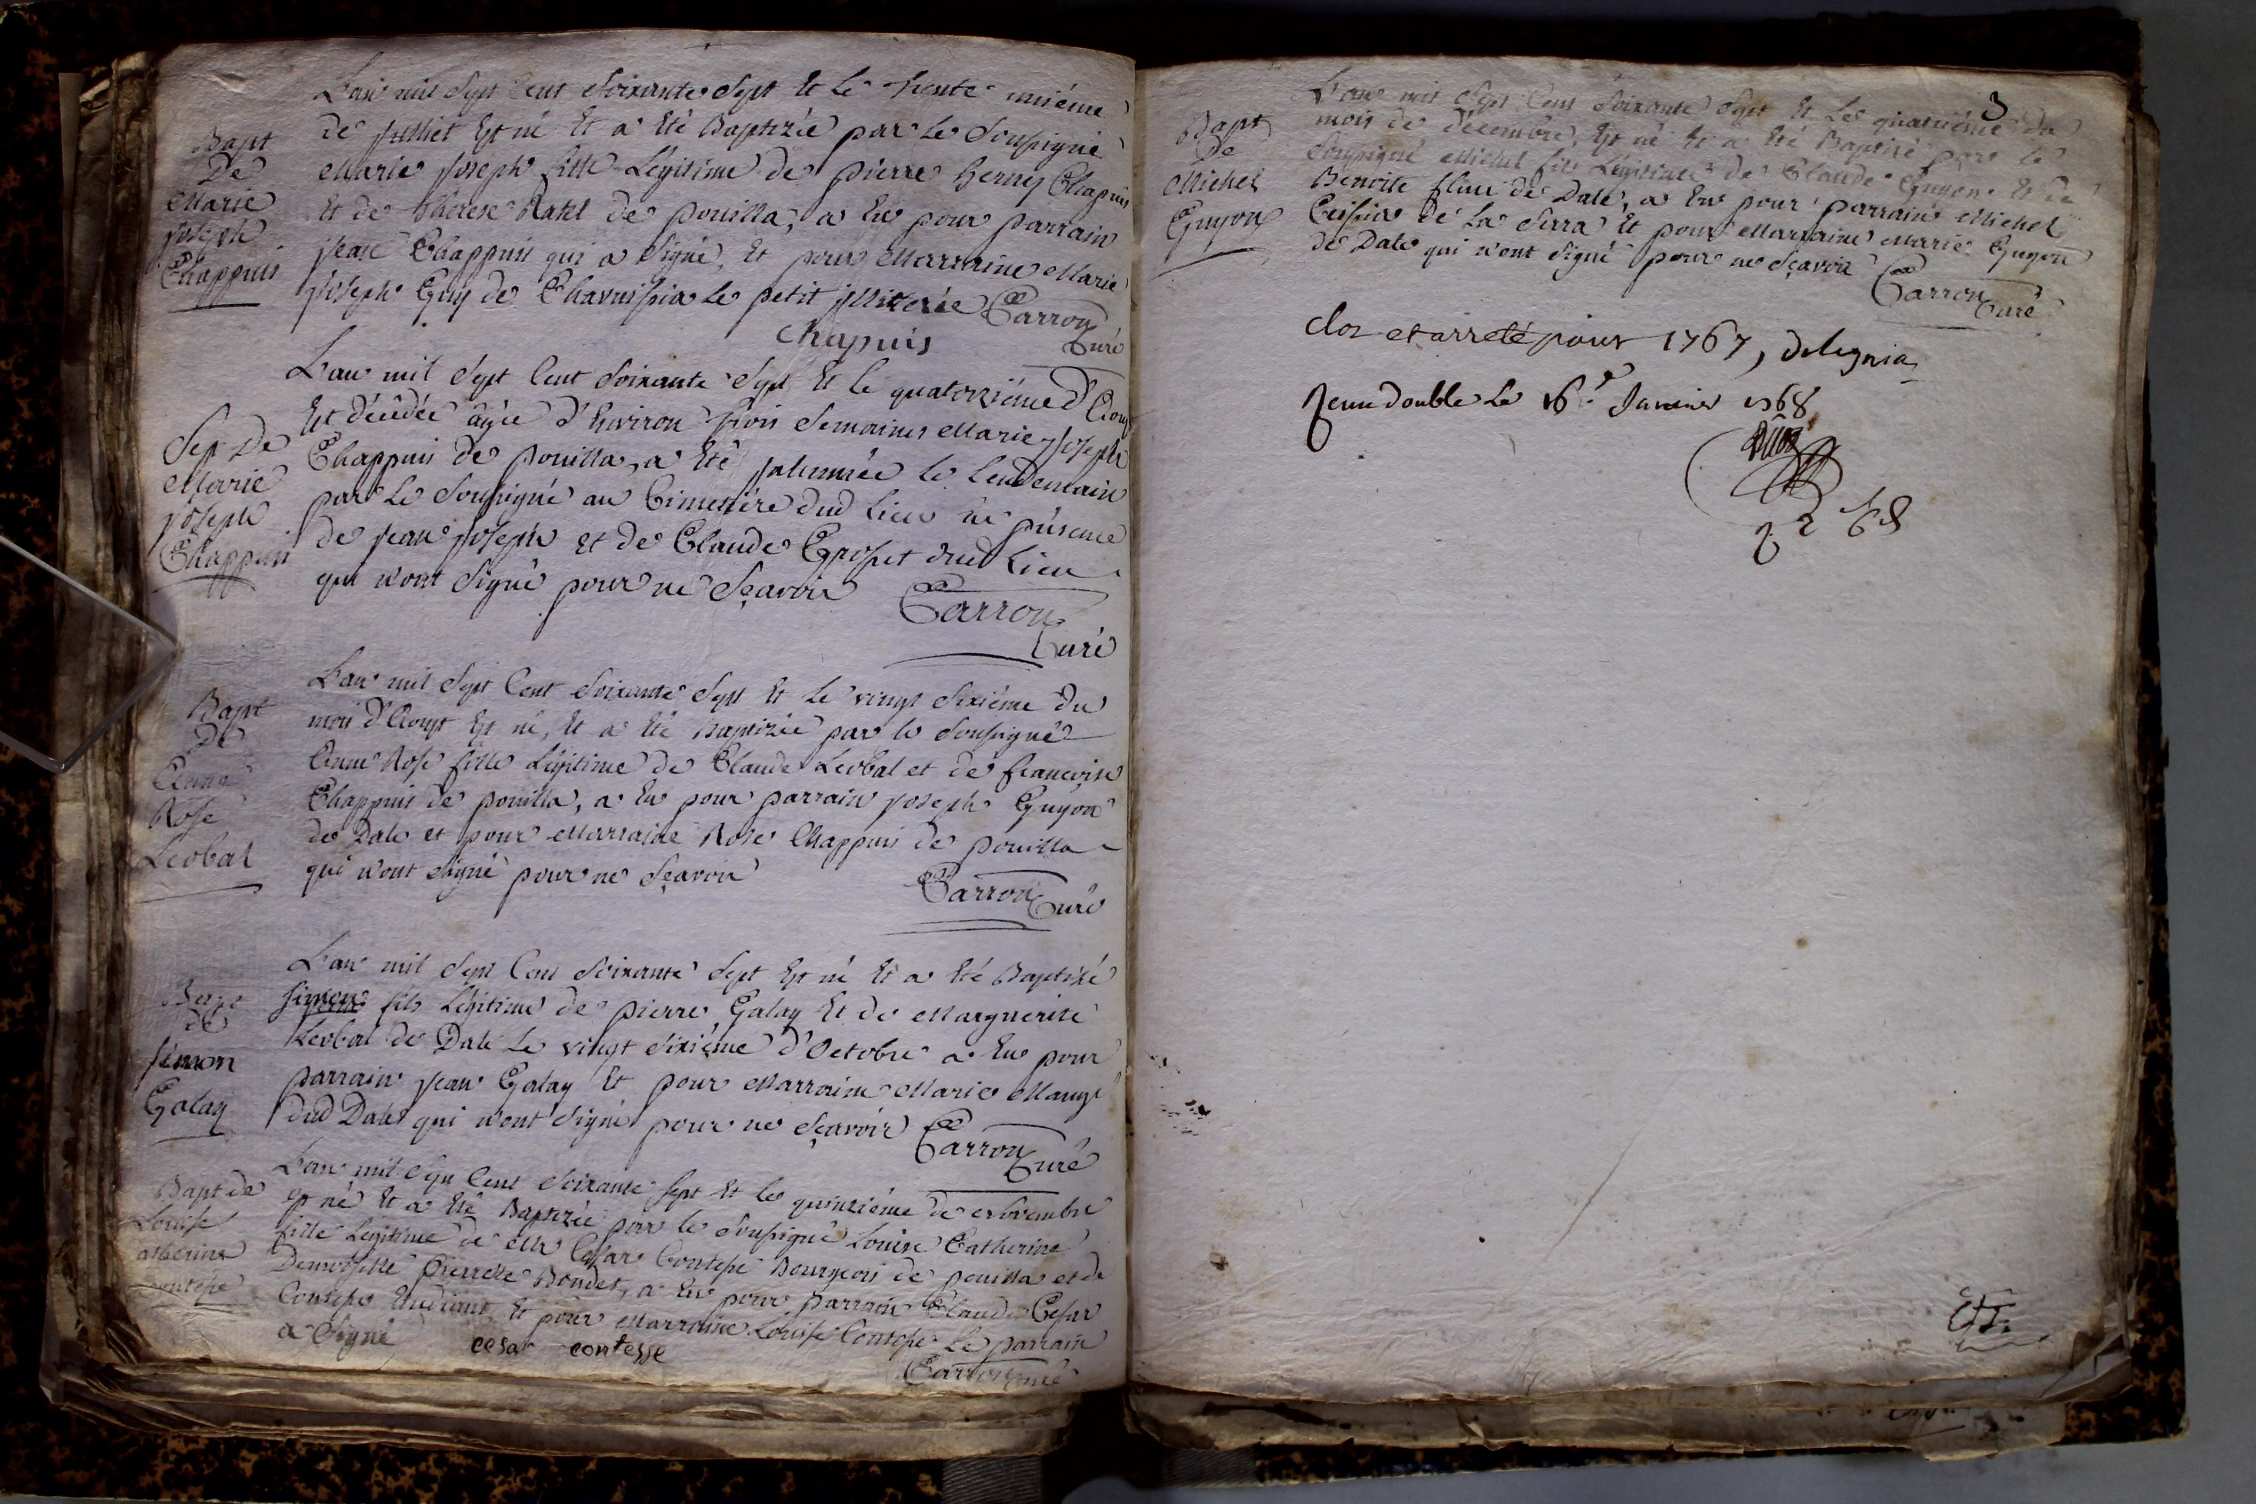 Bapt
De
Marie
Joseph
Chappuis
L'an mil sept cent soixante sept et le trente uniéme
de Julliet est né et a été Baptizée par le soussigné
Marie Joseph fille Légitime de pierre henrey Chapuis
et de thérese de pouilla, a eu pour parrain
jean Chappuis qui a signé, et pour Marraine Marie
Joseph Guy de Charnisia le petit jllitérée Carron
Chapuis Curé
Sep De
Marie
Joseph
Chappuis
L'an mil sept cent soixante sept et le quatorziéme d'Aoust
est décédée âgée d'environ trois semaines Marie Joseph
Chappuis de pouilla, a été jnhumée le lendemain
par le soussigné au Cimetiére dud Lieu en présence
de jean joseph et de Claude Grospit dud Lieu
qui n'ont signé pour ne sçavoir Carron
Curé
Bapt
De
Anne
Rose
Leobal
L'an mil sept cent soixante sept et le vingt sixiéme du
mois d'Aoust est né, et a été baptizée par le soussigné
Anne Rose fille Légitime de Claude Leobal et de francoise
Chappuis de pouilla, a eu pour parrain joseph Guyon
de Dale et pour Marraine Rose Chappuis de pouilla
qui n'ont signé pour ne sçavoir Carron
Curé
de
simon
Galay
L'an mil sept cent soixante sept est né et a été Baptisé
simon fils Légitime de pierre Galay et de Marguerite
Leobal de Dale le vingt sixiéme d'Octobre a eu pour
parrain jean Galay et pour Marraine Marie
dud Dale qui n'ont signé pour ne sçavoir Carron
Curé
Bapt de
Louise
Catherine
Contesse
L'an mil sept cent soixante sept et le quinziéme de Novembre
est né et a été Baptizée par le soussigné Louise Catherine
fille Légitime de Mr Cesar Contesse Bourgeois de pouilla et de
Demoiselle pierrette Bondet, a eu pour parrain Claude Cesar
Contesse étudiant et pour Marraine Louise Contesse le parrain
a signé cesar contesse
Carron curé
3
Bapt
De
Michel
Guyon
L'an mil sept cent soixante sept et le quatriéme du
mois de décembre, est né et a été Baptisé par le
soussigné Michel fils Légitime de Claude Guyon et de
Benoite de Dale, a eu pour parrain Michel
Crispin de La Serra et pour Marraine Marie Guyon
de Dale qui n'ont signé pour ne sçavoir Carron
Curé
clos et arreté pour 1767, delegnia
Receu double le 16e Janvier 1768